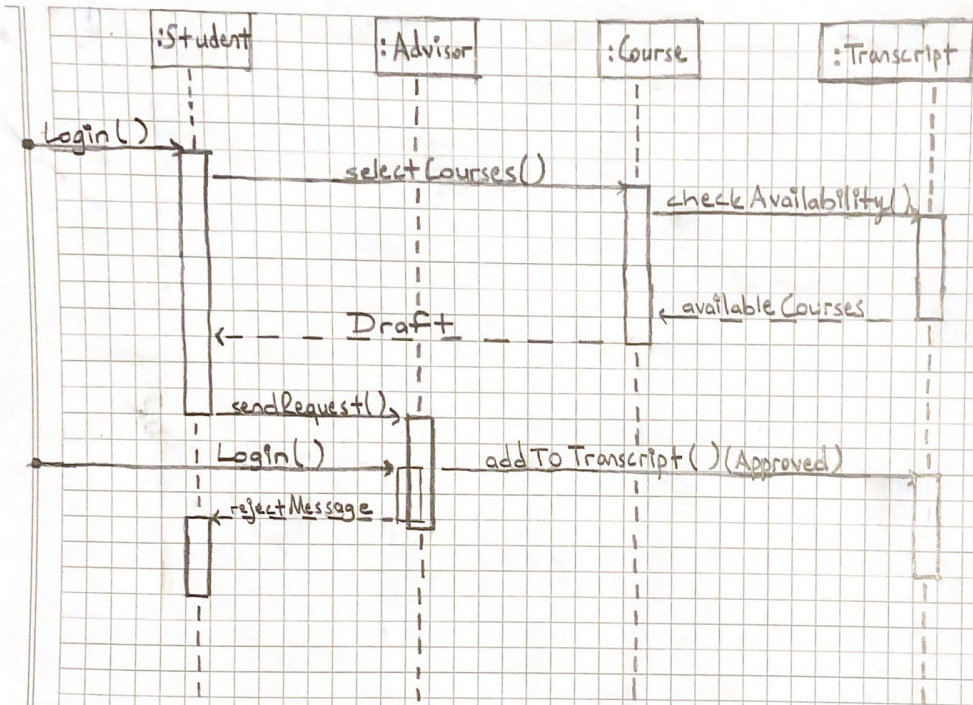 :Student
:Advisor
:Course
:Transcript
Login()
selectCourses()
checkAvailability()
availableCourses
Draft
sendRequest()
Login()
addToTranscript()(Approved)
rejectMessage